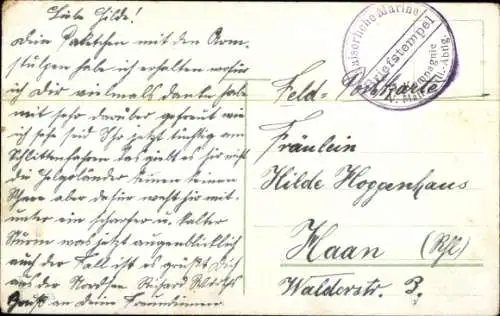 Liebe Hilde!
Dein Paketchen mit den Arm-
stulpen habe ich erhalten wofür
ich Dir vielmals danke habe
mich sehr darüber gefreut wie
ich sehe seid Ihr jetzt tüchtig am
Schlittenfahren das giebt es hier nicht
die Helgoländer kennen keinen
Schnee aber dafür weht hier mit-
unter ein scharfer u. kalter
Sturm was jetzt augenblicklich
auch der Fall ist es grüßt Dich
aus der Nordsee Richard
Gruß an Deine Freundinnen
Kaiserliche Marine
Briefstempel
Kompagnie
Feld-Postkarte
Fräulein
Hilde Hoppenhaus
Haan (Rhl)
Walderstr. 3.